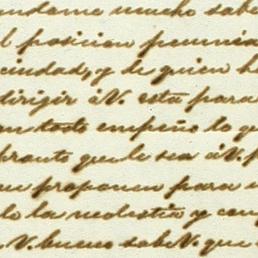 mucho sabe
posicion pecunia
ciudad, y de quien h
dirigir á V. esta para
todo empeño lo q
pronto que le sea á V. p
proponen para
lo la molestia y
V. bueno sabe V. que